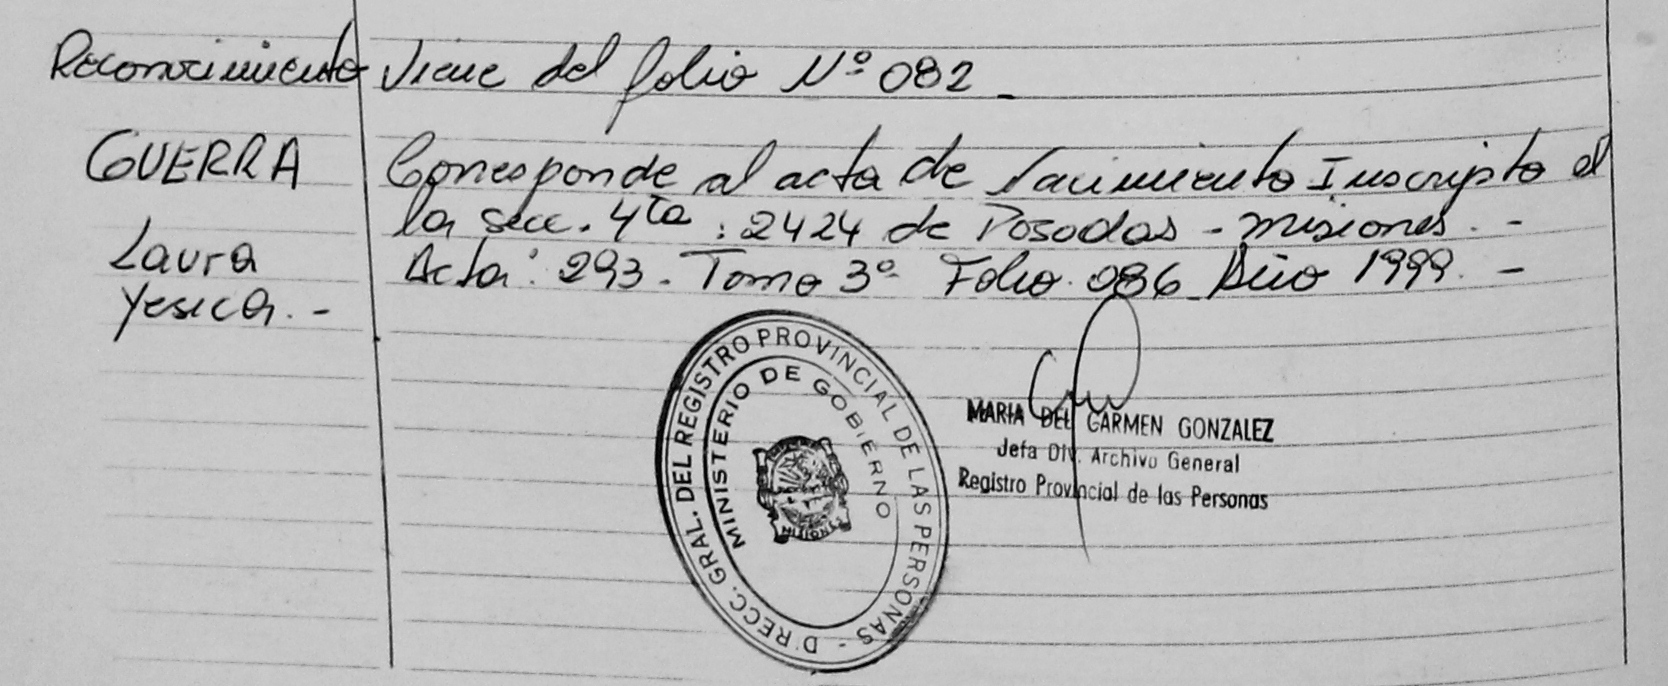 Reconocimiento Viene del folio Nº 082 -
GUERRA Corresponde al acta de Nacimiento Inscripto el
la secc. 4ta : 2424 de Posadas - Misiones. -
Laura Acta: 293 - Tomo 3º Folio. 086 Año 1999. -
Yesica. -
DIRECC. GRAL. DEL REGISTRO PROVINCIAL DE LAS PERSONAS -
MINISTERIO DE GOBIERNO
MISIONES
MARIA DEL CARMEN GONZALEZ
Jefa Div. Archivo General
Registro Provincial de las Personas